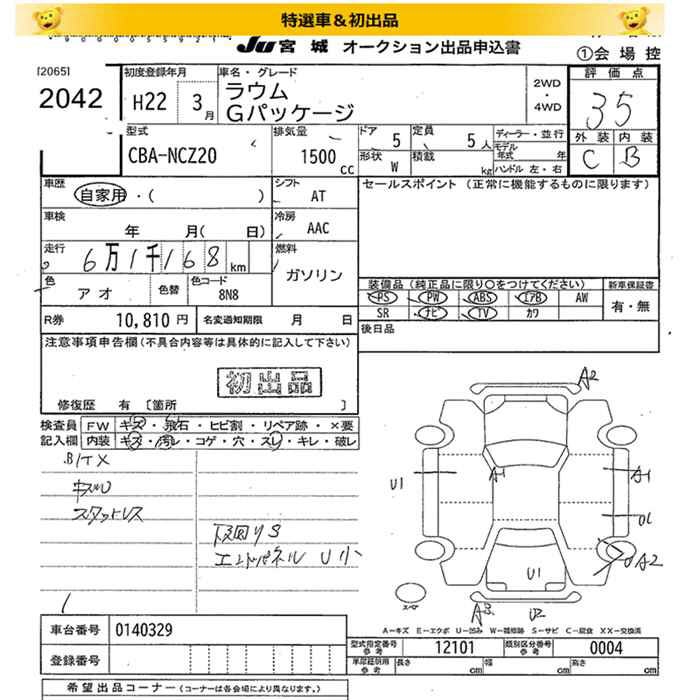 特選車&初出品
JU 宮城 オークション出品申込書
①会場控
[2065]
2042
初度登録年月
H22 3月
車名・グレード
ラウム
Gパッケージ
2WD
・
4WD
評価点
35
外装 内装
C B
型式
CBA-NCZ20
排気量
1500 cc
ドア 5
定員 5人
形状 W
積載 kg
ディーラー・並行
モデル年式 年
ハンドル 左・右
車歴
自家用・( )
シフト AT
セールスポイント (正常に機能するものに限ります)
車検
年 月( 日)
冷房 AAC
走行
6万1千168km
燃料
ガソリン
色
アオ
色替
色コード
8N8
装備品(純正品に限り○をつけてください)
新車保証書
PS PW ABS エアB AW
有・無
SR ナビ TV カワ
R券 10,810円
名変通知期限 月 日
後日品
注意事項申告欄(不具合内容等は具体的に記入して下さい)
初出品
修復歴 有 〔箇所 〕
検査員
記入欄
FW キズ・飛石・ヒビ割・リペア跡・×要
内装 キズ・汚レ・コゲ・穴・スレ・キレ・破レ
スタットレス
下回りS
エンドパネル U小
A2
U1
A1
A1
U1
A2
A3
U2
スペア
A-キズ E-エクボ U-凹み W-補修跡 S-サビ C-腐食 XX-交換済
車台番号 0140329
登録番号
型式指定番号 参考 12101
類別区分番号 参考 0004
車庫証明用 参考 長さ cm 幅 cm 高さ cm
希望出品コーナー (コーナーは各会場により異なります。)